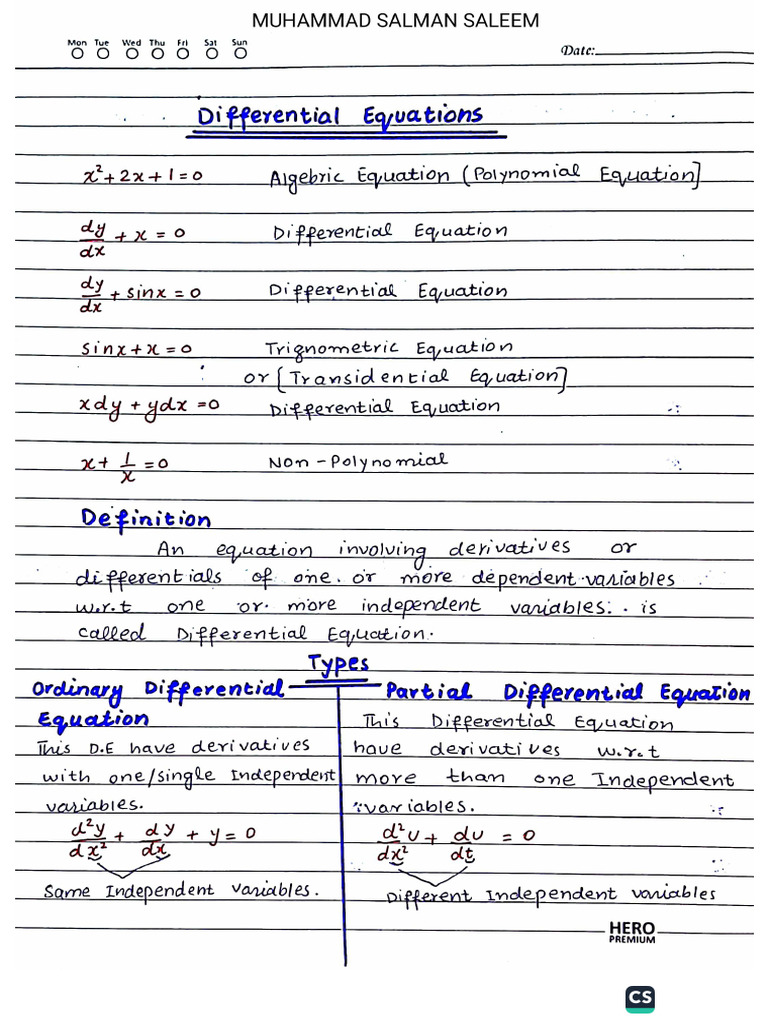 MUHAMMAD SALMAN SALEEM
Mon Tue Wed Thu Fri Sat Sun
Date:
Differential Equations
x²+2x+1=0 Algebric Equation (Polynomial Equation]
dy/dx + x = 0 Differential Equation
dy/dx + sinx = 0 Differential Equation
sinx+x=0 Trignometric Equation
or [Transidential Equation]
xdy + ydx =0 Differential Equation
x+ 1/x =0 Non-Polynomial
Definition
An equation involving derivatives or
differentials of one. or more dependent variables
w.r.t one or more independent variables. is
called Differential Equation.
Types
Ordinary Differential
Equation
This D.E have derivatives
with one/single Independent
variables.
d²y/dx² + dy/dx + y = 0
Same Independent variables.
Partial Differential Equation
This Differential Equation
have derivatives w.r.t
more than one Independent
variables.
d²u/dx² + du/dt = 0
Different Independent variables
HERO
PREMIUM
CS